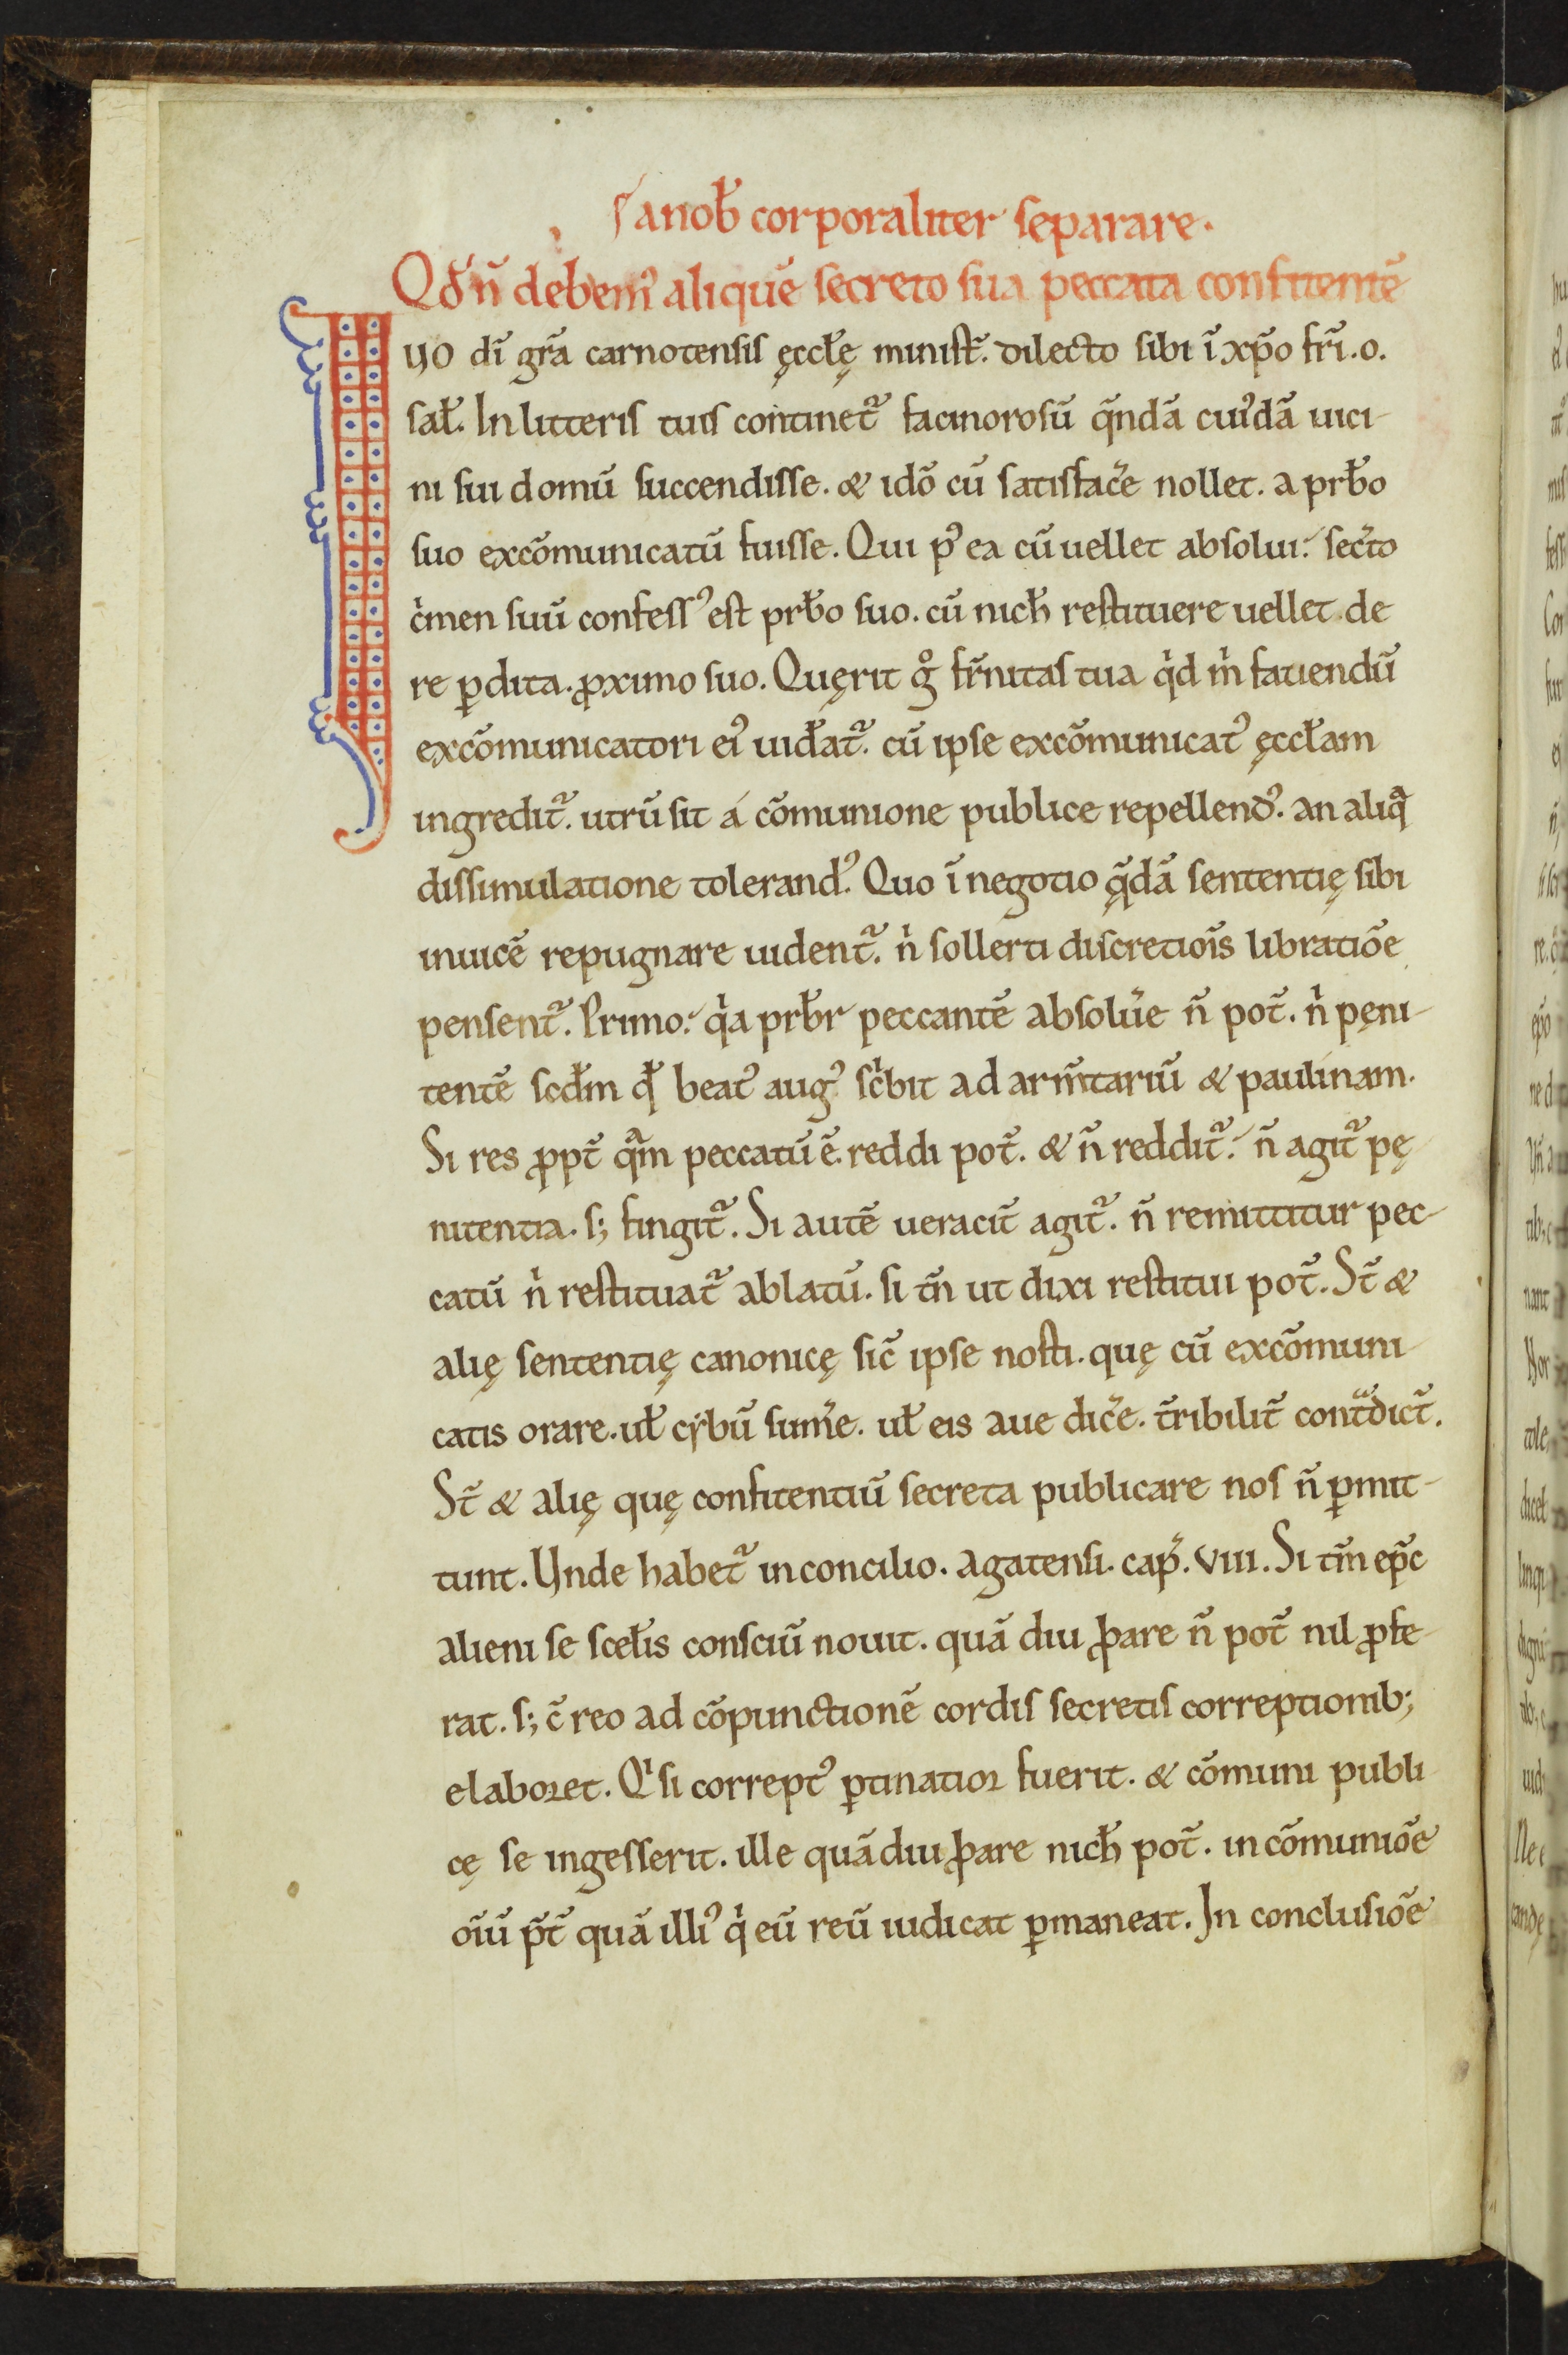 ſ anob̄ corporaliter ſeparare.
Qđ n̄ debem᷒ aliquē ſecreto ſua peccata confitentē
IUO dī gr̄a carnotenſiſ ęccłę miniſt̄. dilecto ſibi ī xp̄o fr̄i .o.
ſał. In litteriſ tuiſ continet᷑ facinoroſū q̄ndā cui᷒dā uici-
ni ſui domū ſuccendiſſe. & idō cū ſatiſfac̄e nollet. a prb̄o
ſuo excōmunicatū fuiſſe. Qui p᷒ ea cū uellet abſolui. ſec̄to
c̍men ſuū confeſſ᷒ eſt prb̄o ſuo. cū nich̄ reſtituere uellet de
re ꝑdita. ꝓximo ſuo. Quęrit g̊ fr̄nitaſ tua q̍d m̍ fauendū
excōmunicatori ei᷒ uid̄at᷑. cū ipſe excōmunicat᷒ ęccłam
ingredit᷑. utrū ſit á cōmunione publice repellend᷒. an aliq̄
diſſimulatione tolerand᷒. Quo ī negotio q̨̄dā ſententię ſibi
inuicē repugnare uident᷑. n̍ ſollerti diſcretiōiſ libratiōe
penſent᷑. Primo. q̍a prb̄r peccantē abſolūe n̄ pot̄. n̍ pęni-
tentē scd̄m qđ beat᷒ aug᷒ ſc̍bit ad arm̄tariū & paulínam.
Si res ꝓpt̄ q̄m peccatū ē. reddi pot̄. & n̄ reddit᷑. n̄ agit᷑ pę
nitentia. ſ; fingit᷑. Si autē ueracit̄ agit᷑. n̄ remittitur pec-
catū n̍ reſtituat᷑ ablatū. ſi tn̄ ut dixi reſtitui pot̄. St̄ &
alię ſententię canonicę ſic̄ ipſe noſti. quę cū excōmuni-
catis orare. uł cybū ſum̄e. uł eis aue dic̄e. t̄ribilit̄ contᷓdict̄.
St̄ & alię quę confitentiū ſecreta publicare noſ n̄ ꝑmit-
tunt. Unde habet᷑ in concilio. agatenſi. cap̄. VIII. Si tm̄ ep̄c
alieni ſe ſcełiſ conſciū nouit. quā diu ꝓbare n̄ pot̄ nil ꝓfe-
rat. ſ; c̄ reo ad cōpunctionē cordiſ ſecretiſ correptionib;
elaboret. Q̍ ſi corrept᷒ ꝑtinatior fuerit. & cōmuni publi
cę ſe ingeſſerit. ille quādiu ꝓbare nich̄ pot̄. in cōmuniōe
oīū p̄t̄ quā illi᷒ q̍ eū reū iudicat ꝑmaneat. In concluſiōe